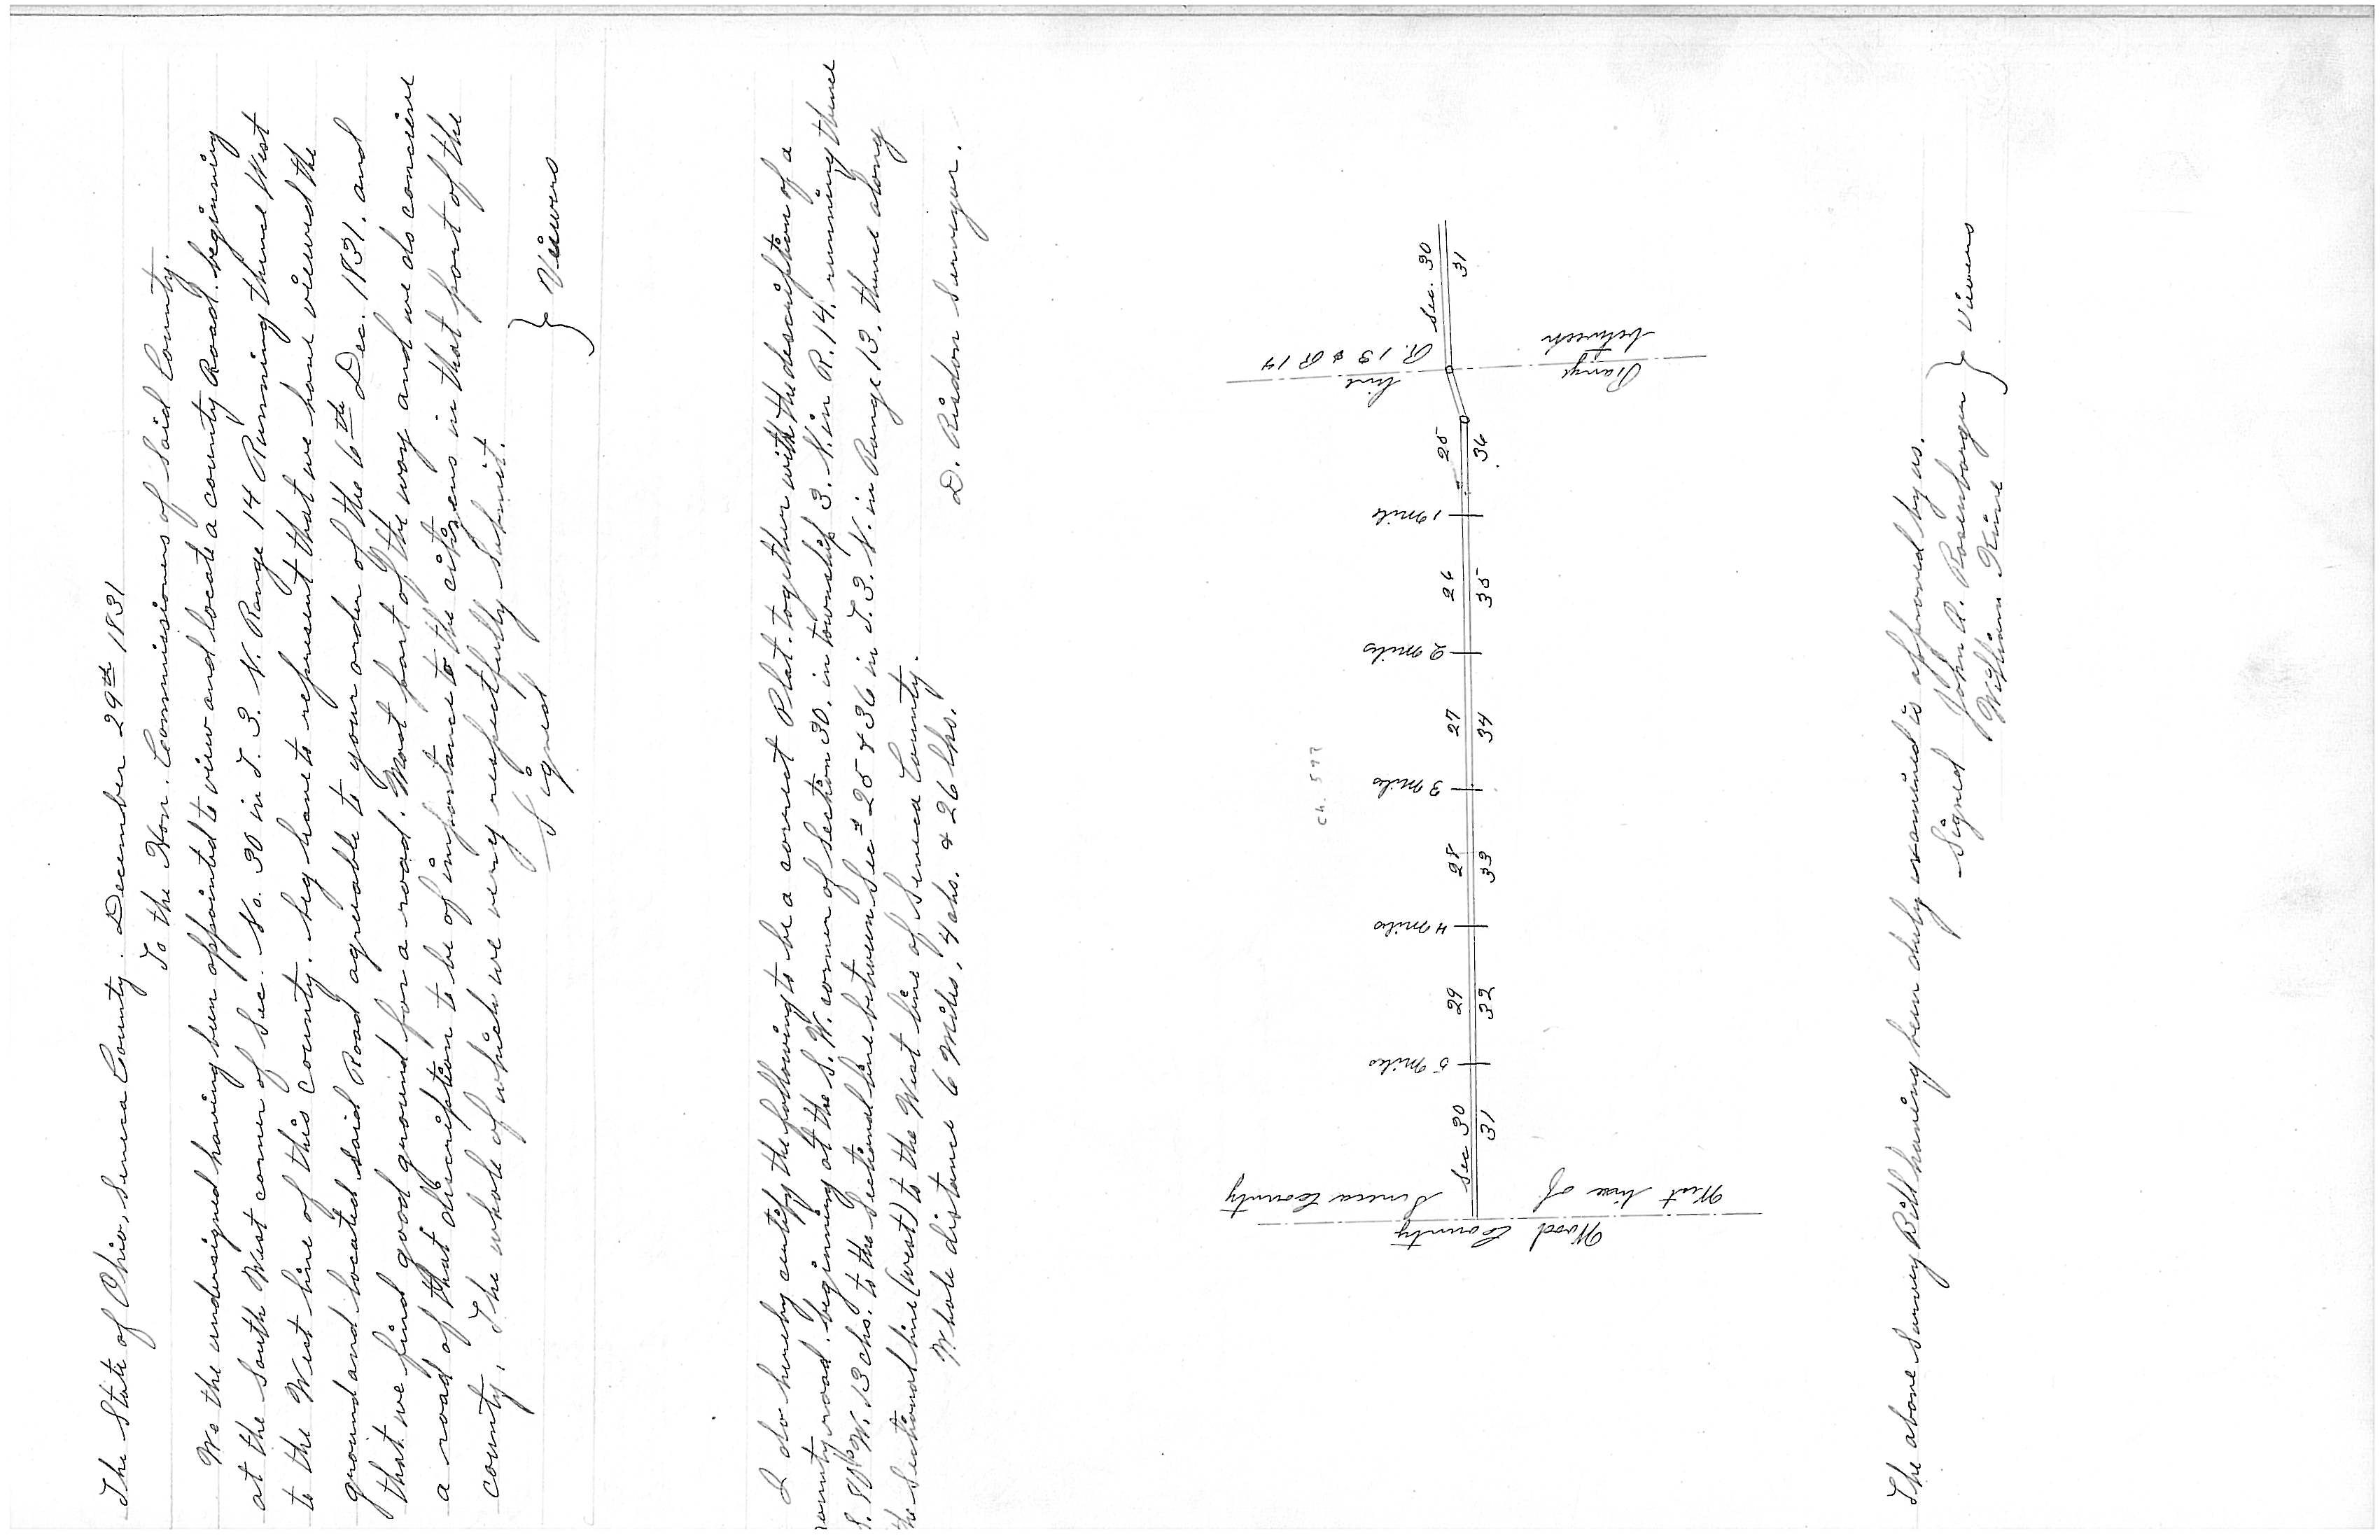 The State of Ohio, Seneca County. December 29th 1831
To the Hon. Commissioners of said County.
We the undersigned having been appointed to view and locate a county Road. beginning
at the South West corner of Sec. No. 30 in T. 3. N. Range 14 Running thence West
to the West line of this county. beg leave to represent that we have viewed the
ground and located said Road agreeable to your order of the 6th Dec. 1831. and
that we find good ground for a road. Most part of the way and we do conceive
a road of that discription to be of importance to the citizens in that part of the
county. The whole of which we very respectfully submit.
Signed } Viewers
I do hereby certify the following to be a correct Plat. together with the description of a
county road. beginning at the S. W. corner of Section 30. in township 3. N. in R. 14. running thence
S. 80° W. 13 chs. to the Sectional line between Secs 25 & 36 in T. 3. N. in Range 13. thence along
the Sectional line (west) to the West line of Seneca County.
Whole distance 6 Miles, 4 chs. & 26 lks.
D. Risdon Surveyor.
West line of Seneca County
Wood County
Sec 30
31
5 miles
29
32
4 miles
28
33
ch. 597
3 miles
27
34
2 miles
26
35
1 mile
25
36
Range line
between R. 13 & R 14
Sec. 30
31
The above Survey Bill having been duly examined is approved by us.
Signed John A. Rosenbarger } Viewers
William Kline